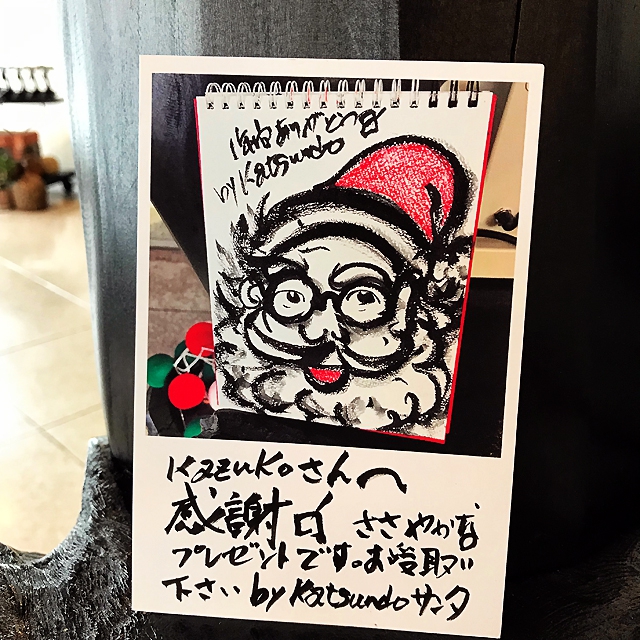 ありがとう
by Katsundo
Kazukoさんへ
感謝 ささやかな
プレゼントです。お受取り
下さい by Katsundoサンタ